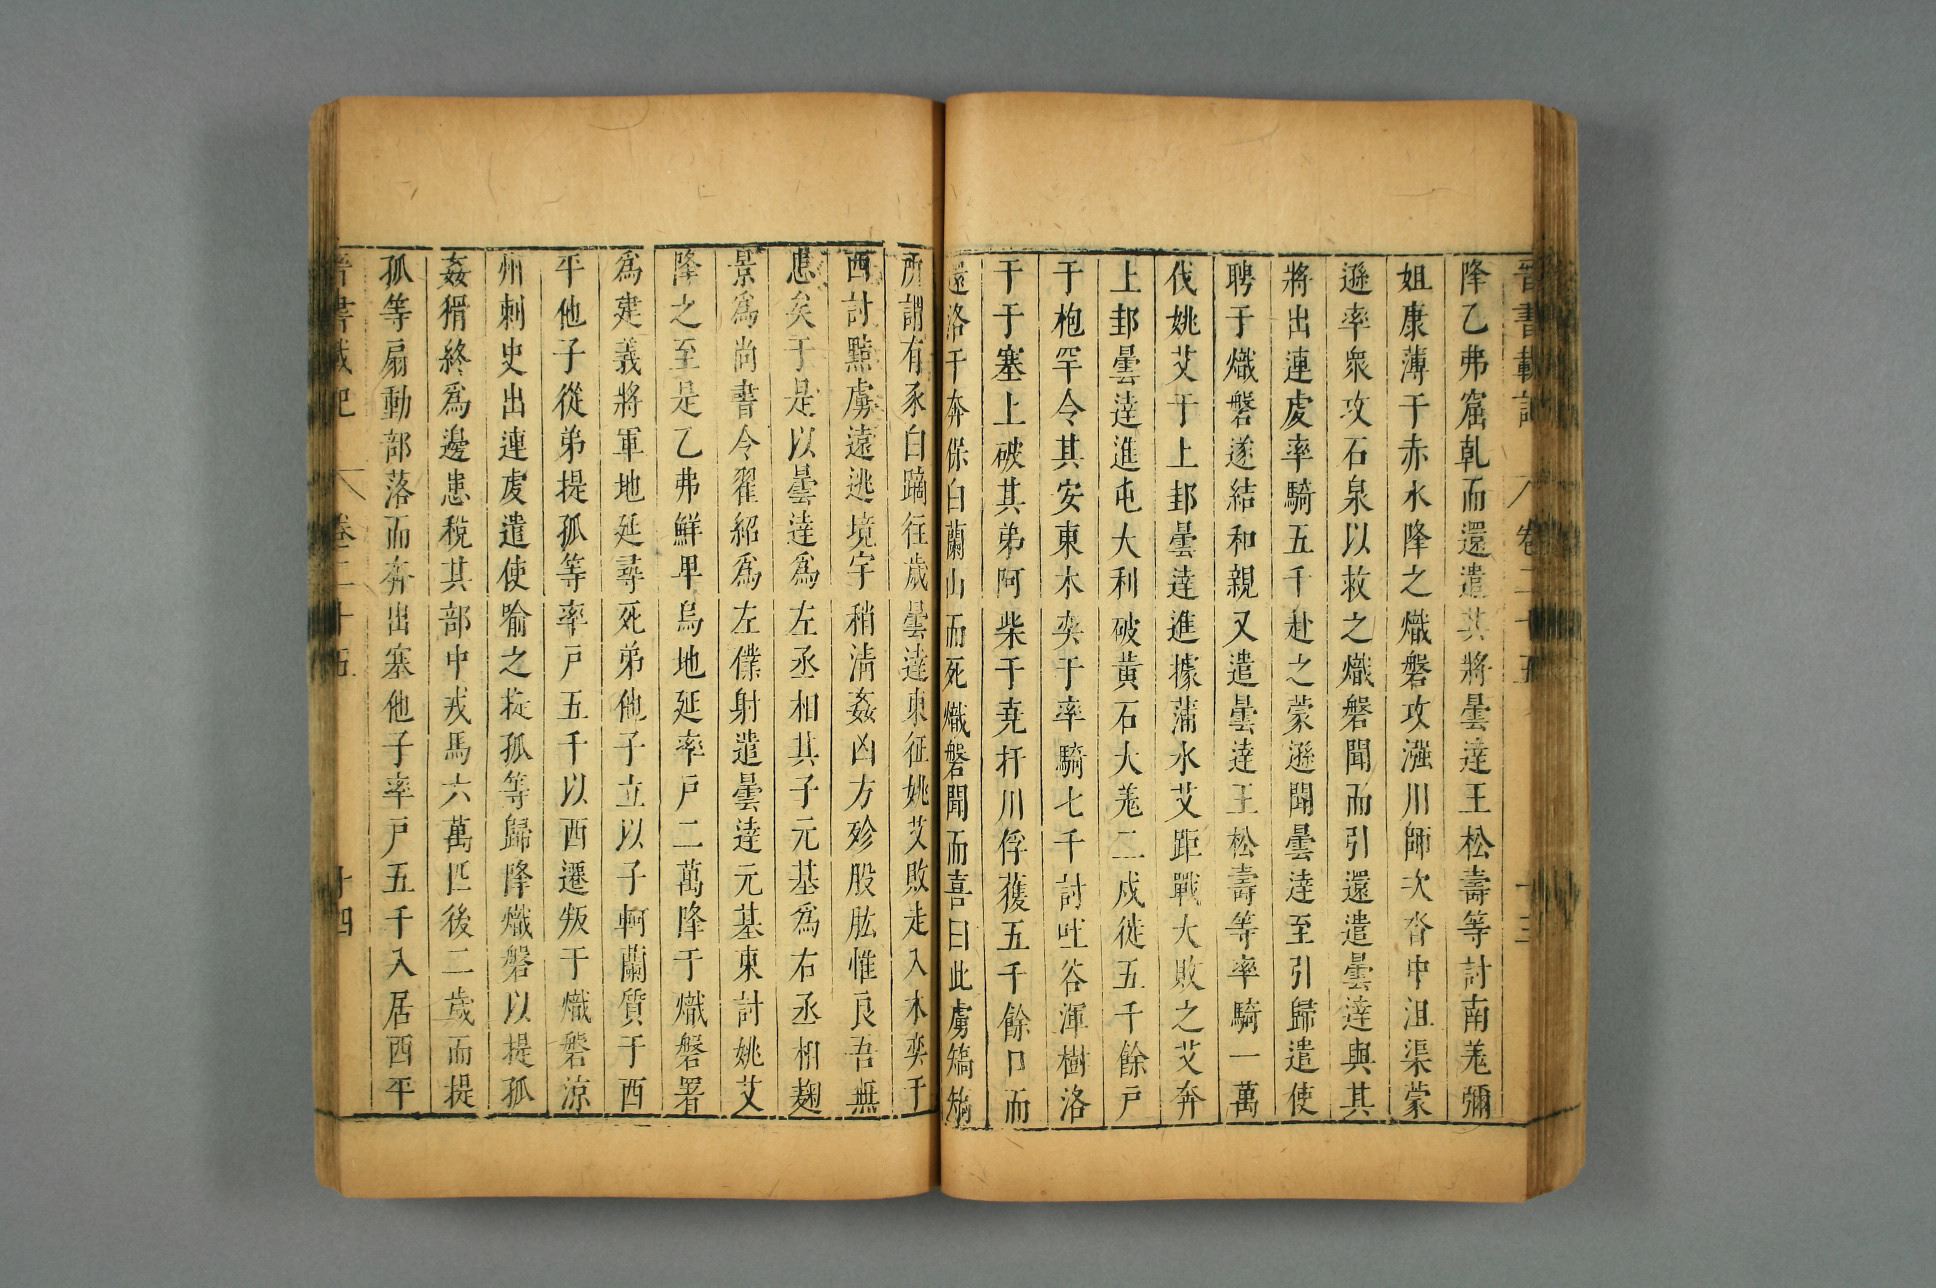 晉書載記 卷二十五 十三
降乙弗窟乹而還遣其將曇逹王松壽等討南羗彌
姐康薄于赤水降之熾磐攻漒川師次沓中沮渠蒙
遜率衆攻石泉以救之熾磐聞而引還遣曇逹與其
將出連䖍率騎五千赴之蒙遜聞曇逹至引歸遣使
聘于熾磐遂結和親又遣曇逹王松壽等率騎一萬
伐姚艾于上邽曇逹進據蒲水艾距戰大敗之艾奔
上邽曇逹進屯大利破黃石大羗二戍徙五千餘戸
于枹罕令其安東木奕于率騎七千討吐谷渾樹洛
干于塞上破其弟阿柴于尭扞川俘獲五千餘口而
還洛干奔保白蘭山而死熾磐聞而喜曰此虜矯矯
所謂有豕白蹢往歲曇逹東征姚艾敗走今木奕于
西討黠虜遠逃境宇稍淸姦凶方殄股肱惟良吾無
患矣于是以曇逹爲左丞相其子元基爲右丞相麹
景爲尚書令翟紹爲左僕射遣曇逹元基東討姚艾
降之至是乙弗鮮卑烏地延率戸二萬降于熾磐署
爲建義將軍地延尋死弟他子立以子軻蘭質于西
平他子從弟提孤等率戸五千以西遷叛于熾磐涼
州刺史出連䖍遣使喻之提孤等歸降熾磐以提孤
姦猾終爲邊患稅其部中戎馬六萬匹後二歲而提
孤等扇動部落而奔出塞他子率戸五千入居西平
晉書載記 卷二十五 十四